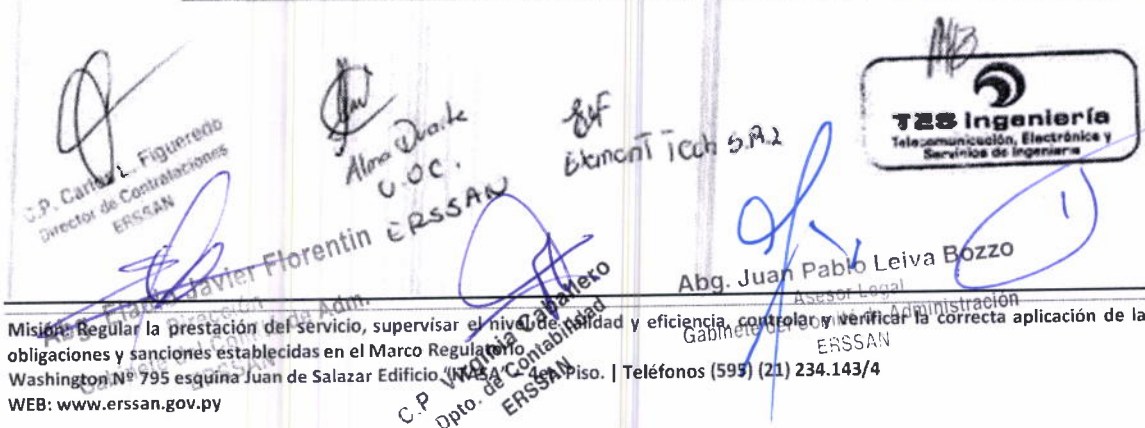 C.P. Carlos L. Figueredo
Director de Contrataciones
ERSSAN
Alma Duarte
U.O.C.
ERSSAN
Element Tech S.R.L
TES Ingeniería
Telecomunicación, Electrónica y
Servicios de Ingeniería
Javier Florentin
Dirección
Gabinete del Adm.
C.P. Virginia Caballero
Dpto. de Contabilidad
ERSSAN
Abg. Juan Pablo Leiva Bozzo
Asesor Legal
Gabinete Administración
ERSSAN
Misión: Regular la prestación del servicio, supervisar el nivel de calidad y eficiencia, controlar y verificar la correcta aplicación de la
obligaciones y sanciones establecidas en el Marco Regulatorio.
Washington Nº 795 esquina Juan de Salazar Edificio "INASA" 4er Piso. | Teléfonos (595) (21) 234.143/4
WEB: www.erssan.gov.py